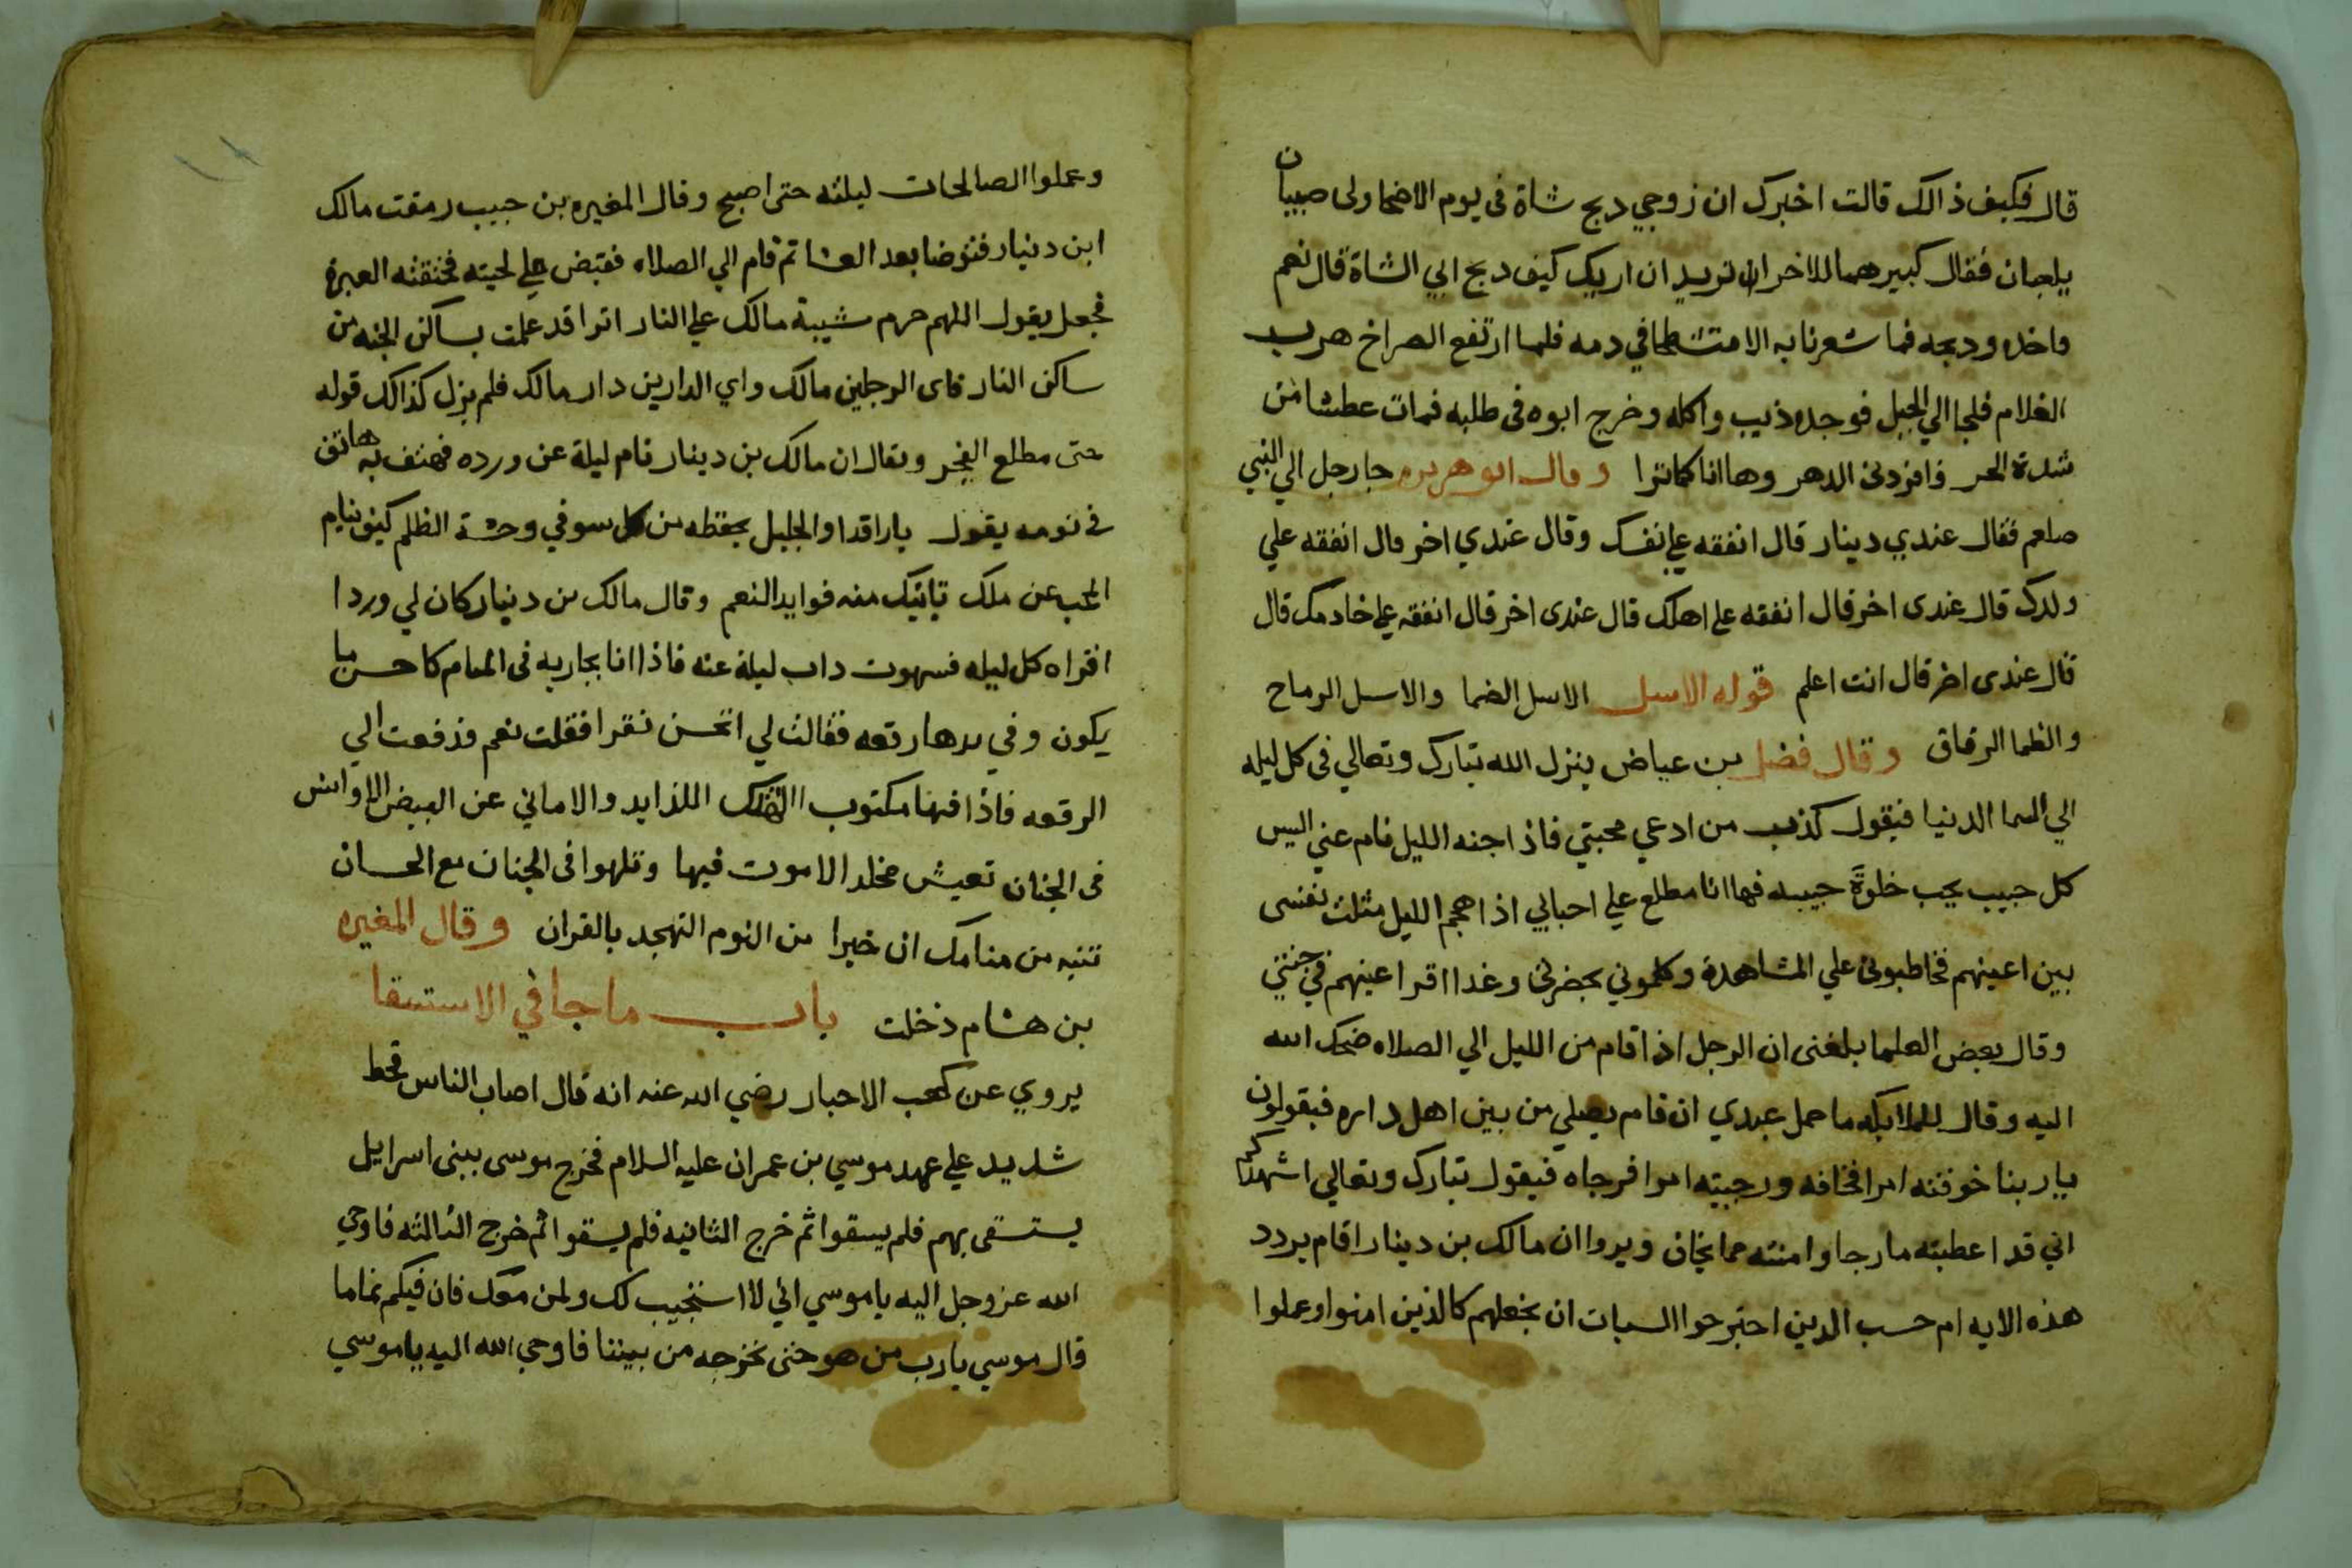 قال فكيف ذالك قالت اخبرك ان زوجي دبح شاة فى يوم الاضحا ولى صبيان
يلعبان فقال كبيرهما للاخر ان تريد ان اريك كيف دبح ابي الشاة قال نعم
واخده ودبحه فما شعرنا به الا متشطحا في دمه فلما ارتفع الصراخ هرب
الغلام فلجا الي الجبل فوجده ذيب واكله وخرج ابوه فى طلبه فمات عطشا من
شدة الحر فافردنى الدهر وها انا كما ترا وقال ابو هريره جا رجل الي النبي
صلعم فقال عندي دينار قال انفقه علي نفسك وقال عندي اخر قال انفقه علي
ولدك قال عندى اخر قال انفقه علي اهلك قال عندى اخر قال انفقه علي خادمك قال
قال عندى اخر قال انت اعلم قوله الاسل الاسل الضما والاسل الرماح
والظما الرقاق وقال فضل بن عياض ينزل الله تبارك وتعالي فى كل ليله
الي السما الدنيا فيقول كذب من ادعي محبتي فاذا جنه الليل نام عني اليس
كل حبيب يحب خلوةَ حبيبه فها انا مطلع علي احبابي اذا هجم الليل مثلت نفسى
بين اعينهم فخاطبونى علي المشاهدة وكلموني بحضرتى وغدا اقر اعينهم في جنتي
وقال بعض العلما بلغنى ان الرجل اذا قام من الليل الي الصلاه ضحك الله
اليه وقال للملايكه ما حمل عبدي ان قام يصلي من بين اهل داره فيقولون
يا ربنا خوفته امرا فخافه ورجيته امرا فرجاه فيقول تبارك وتعالي اشهدكم
اني قد اعطيته ما رجا وامنته مما يخاف ويروا ان مالك بن دينار اقام يردد
هذه الايه ام حسب الدين اجترحوا السيات ان نجعلهم كالذين امنوا وعملوا
وعملوا الصالحات ليلته حتى اصبح وقال المغيره بن حبيب رمقت مالك
ابن دينار فتوضا بعد العشا ثم قام الي الصلاه فقبض علي لحيته فخنقته العبرة
فجعل يقول اللهم حرم شيبة مالك علي النار اترا قد علمت بساكن الجنه من
ساكن النار فاى الرجلين مالك واي الدارين دار مالك فلم يزل كذالك قوله
حتى مطلع الفجر ويقال ان مالك بن دينار نام ليلة عن ورده فهتف به هاتف
فى نومه يقول يا راقدا والجليل يحفظه من كل سو في وحشة الظلم كيف ينام
المحب عن ملك تاتيك منه فوايد النعم وقال مالك بن دينار كان لي وردا
اقراه كل ليله فسهوت داب ليلة عنه فاذا انا بجاريه فى المنام كاحسن ما
يكون وفي يدها رقعه فقالت لي اتحسن تقرا فقلت نعم فدفعت الي
الرقعه فاذا فيها مكتوب االهتك اللذايد والاماني عن البيض الاوانس
فى الجنان تعيش مخلدا لا موت فيها وتلهوا فى الجنان مع الحسان
تنبه من منامك ان خيرا من النوم التهجد بالقران وقال المغيره
بن هشام دخلت باب ما جا في الاستسقا
يروي عن كعب الاحبار رضي الله عنه انه قال اصاب الناس قحط
شديد علي عهد موسي بن عمران عليه السلام فخرج موسى ببنى اسرايل
يستسقى بهم فلم يسقوا ثم خرج الثانيه فلم يسقوا ثم خرج الثالثه فاوحي
الله عز وجل اليه يا موسي اني لا استجيب لك ولمن معك فان فيكم نماما
قال موسي يا رب من هو حتى نخرجه من بيننا فاوحي الله اليه يا موسي